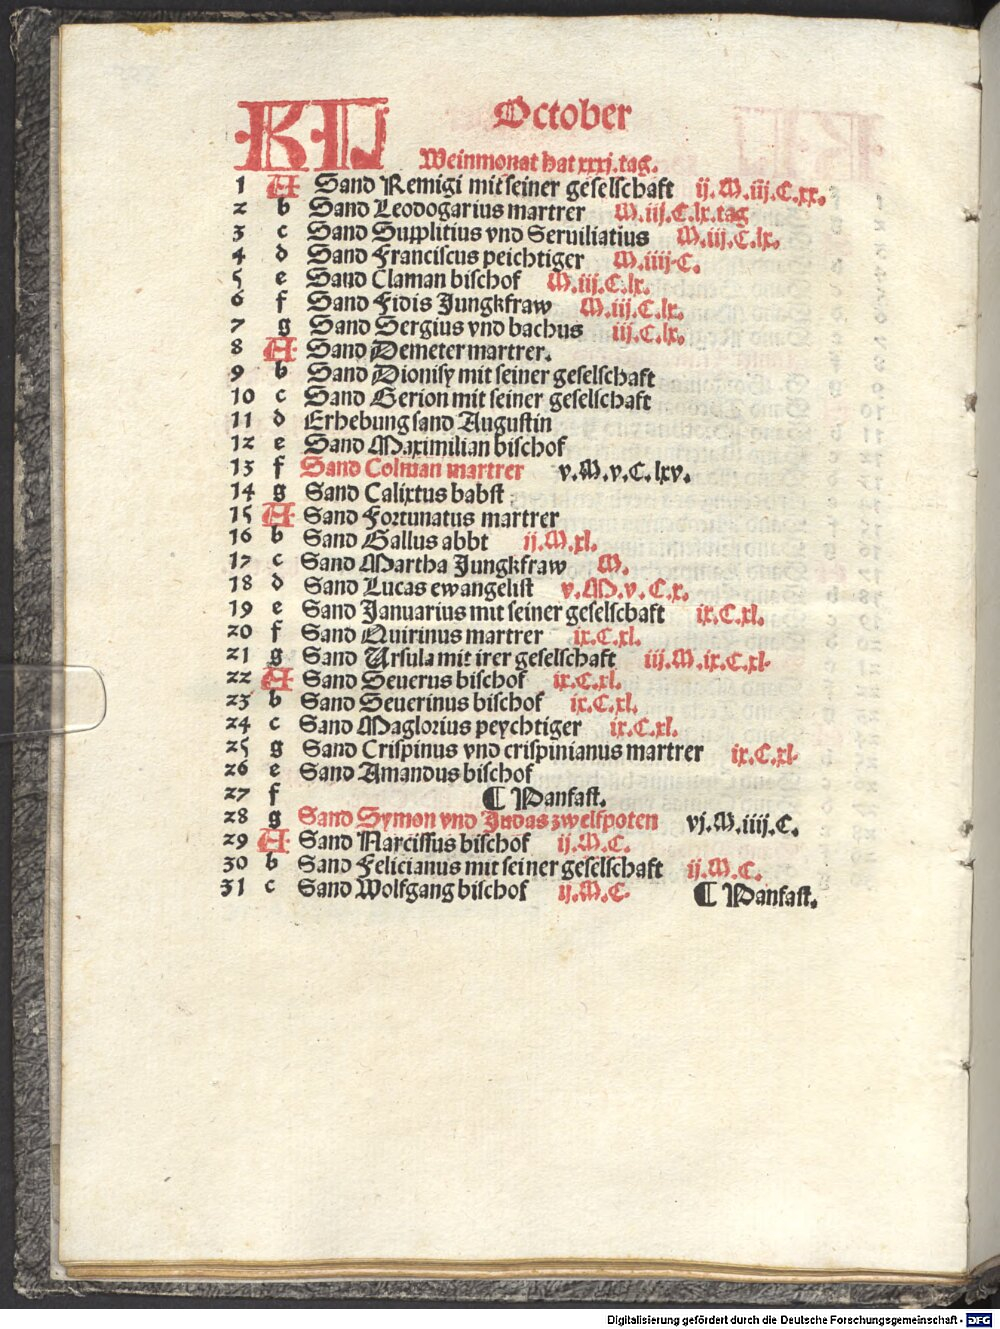 KL October
Weinmonat hat xxxj.tag.
1 A Sand Remigi mit seiner geselschaft ij.M.iij.C.xx.
2 b Sand Leodogarius martrer M.iij.C.lx.tag
3 c Sand Supplitius vnd Seruiliatius M.iij.C.lx.
4 d Sand Franciscus peichtiger M.iiij.C.
5 e Sand Claman bischof M.iij.C.lx.
6 f Sand Fidis Jungkfraw M.iij.C.lx.
7 g Sand Sergius vnd bachus iij.C.lx.
8 A Sand Demeter martrer.
9 b Sand Dionisy mit seiner geselschaft
10 c Sand Gerion mit seiner geselschaft
11 d Erhebung sand Augustin
12 e Sand Maximilian bischof
13 f Sand Colman martrer v.M.v.C.lxv.
14 g Sand Calixtus babst
15 A Sand Fortunatus martrer
16 b Sand Gallus abbt ij.M.xl.
17 c Sand Martha Jungkfraw M.
18 d Sand Lucas ewangelist v.M.v.C.x.
19 e Sand Januarius mit seiner geselschaft ix.C.xl.
20 f Sand Quirinus martrer ix.C.xl.
21 g Sand Ursula mit irer geselschaft iij.M.ix.C.xl.
22 A Sand Seuerus bischof ix.C.xl.
23 b Sand Seuerinus bischof ix.C.xl.
24 c Sand Maglorius peychtiger ix.C.xl.
25 g Sand Crispinus vnd crispinianus martrer ix.C.xl.
26 e Sand Amandus bischof
27 f ¶ Panfast.
28 g Sand Symon vnd Judas zwelfpoten vj.M.iiij.C.
29 A Sand Narcissus bischof ij.M.C.
30 b Sand Felicianus mit seiner geselschaft ij.M.C.
31 c Sand Wolfgang bischof ij.M.C. ¶ Panfast.
Digitalisierung gefördert durch die Deutsche Forschungsgemeinschaft - DFG